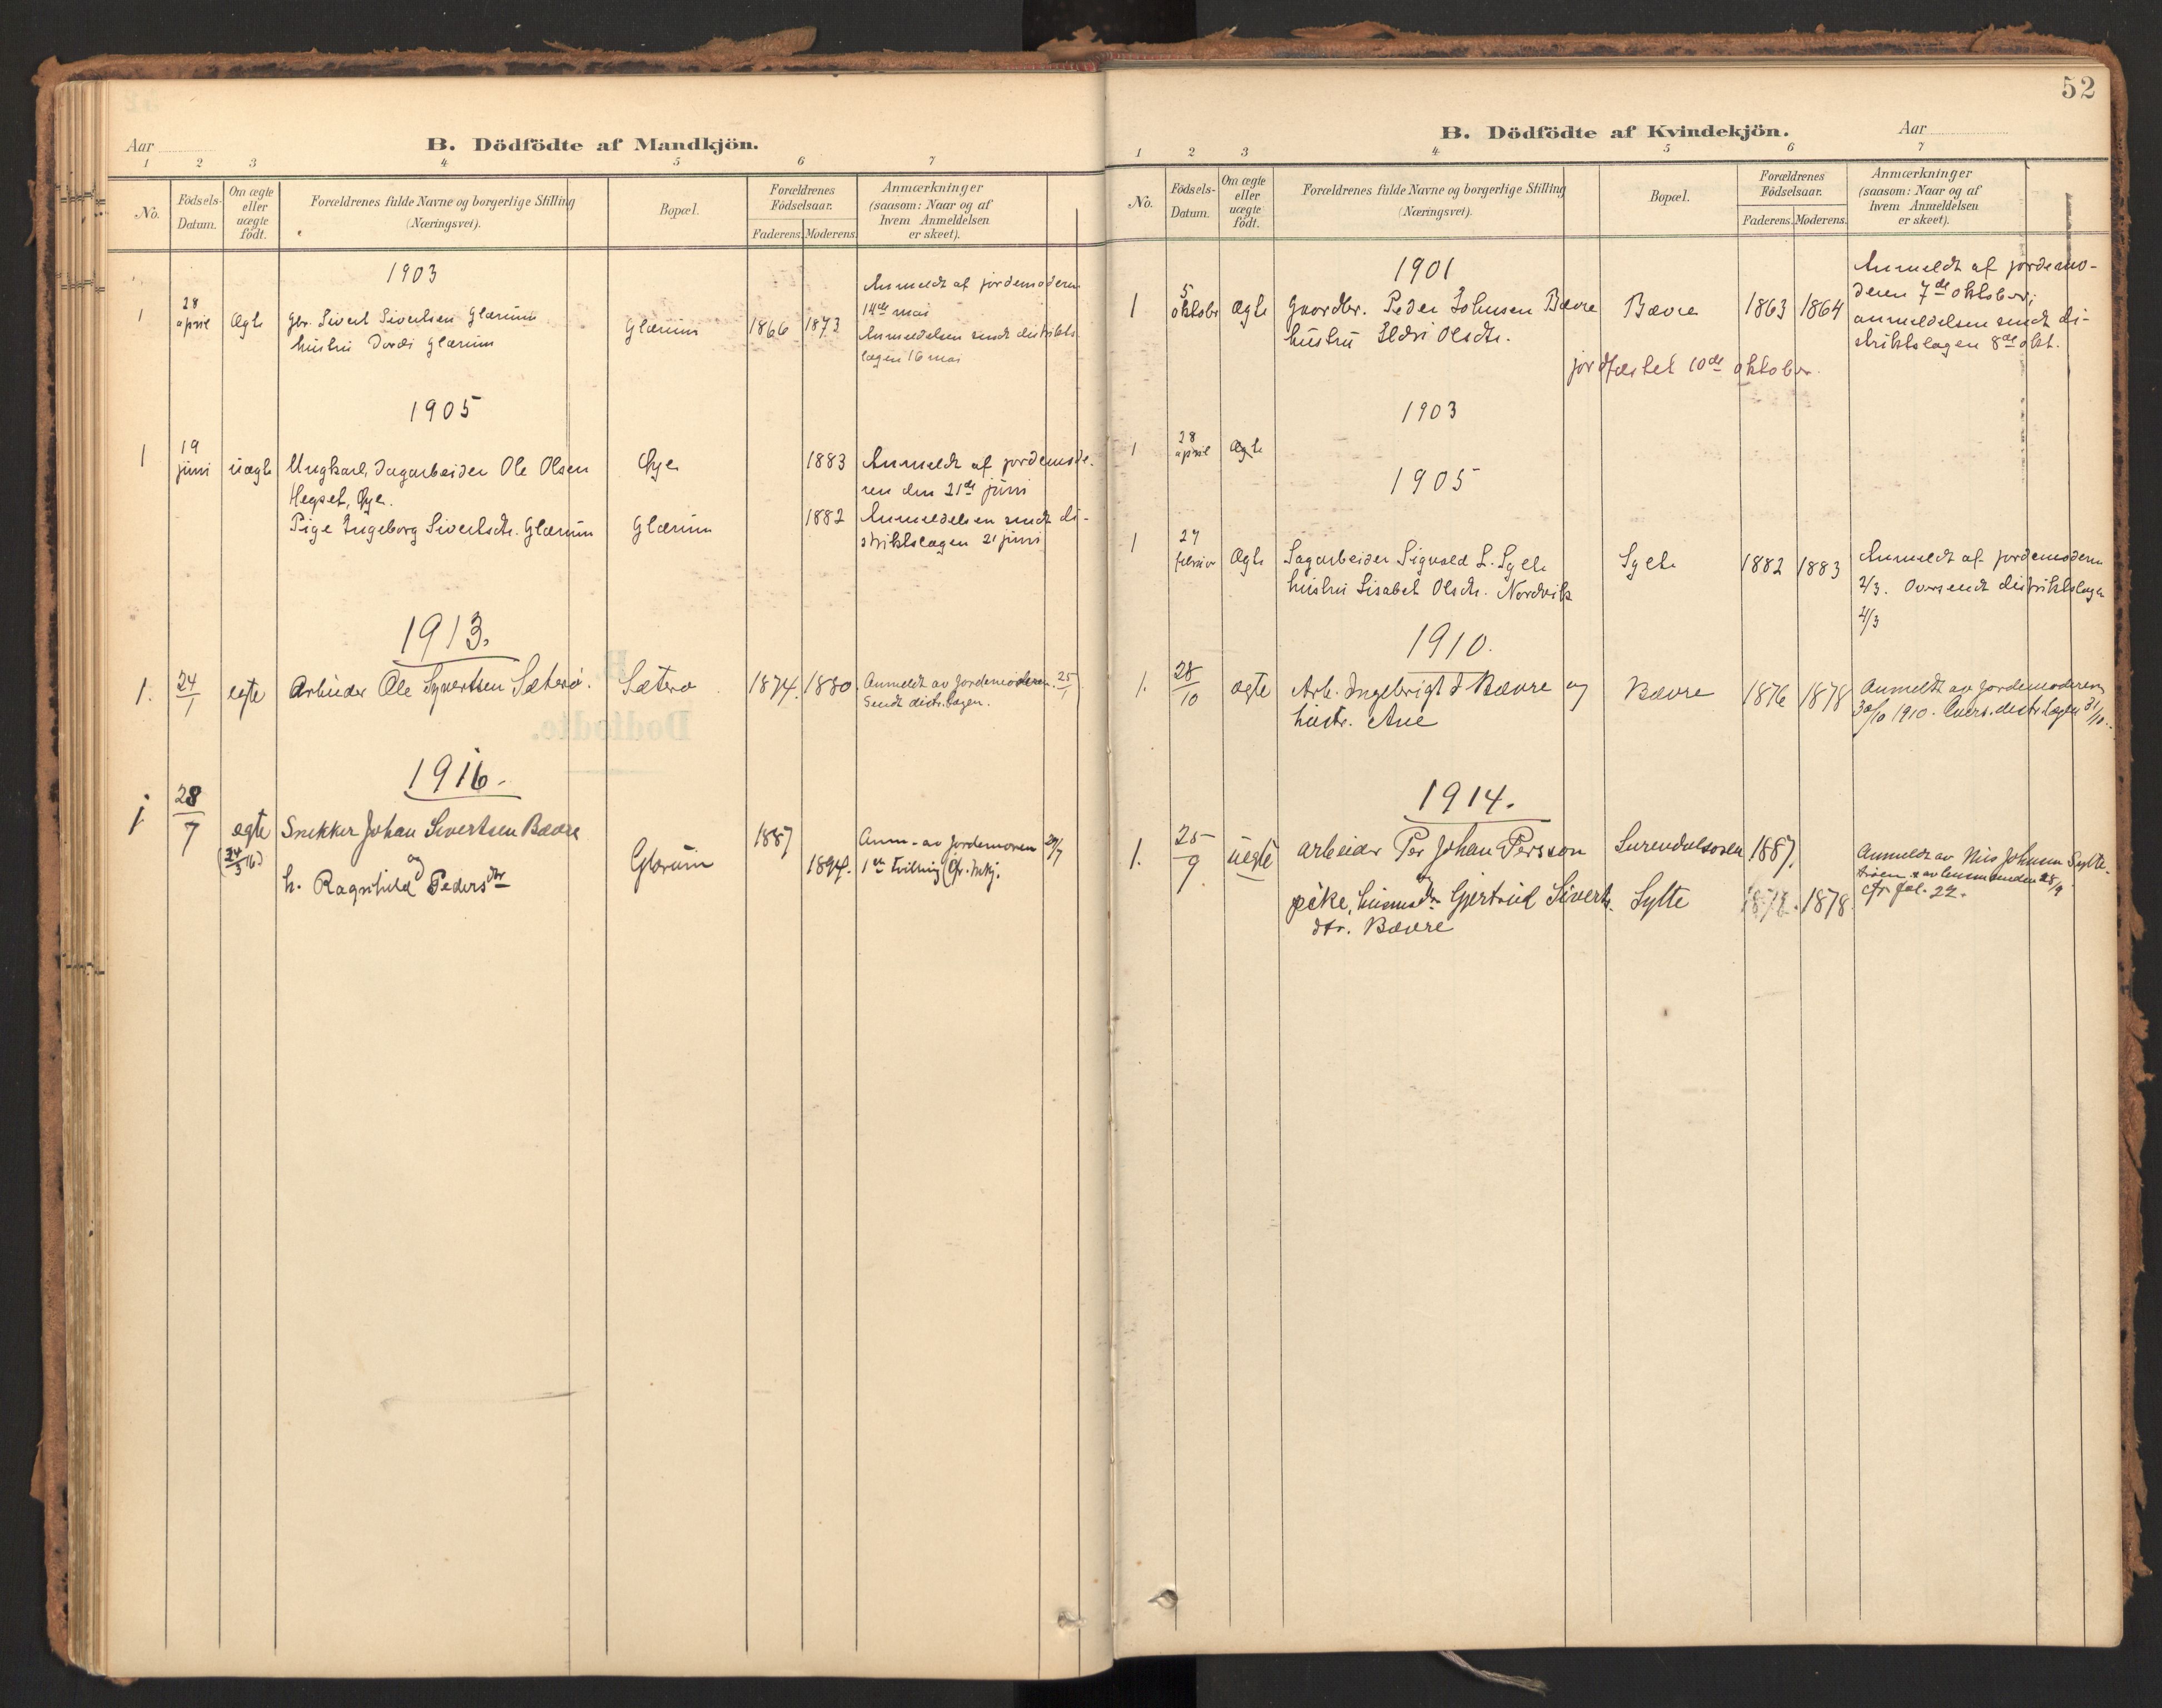 Aar
B. Dödfödte af Mandkjön.
1 2 3 4 5 6 7
No.
Födsels-Datum.
Om ægte eller uægte födt.
Forældrenes fulde Navne og borgerlige Stilling
(Næringsvei).
Bopæl.
Forældrenes Födselsaar.
Faderens. Moderens.
Anmærkninger
(saasom: Naar og af
hvem Anmeldelsen
er skeet).
1903
1 28 april Ægte Gbr. Sivert Sivertsen Glærum Glærum 1866 1873 Anmeldt af jordemoderen
hustru Dordi Glærum 14de mai
Anmeldelsen sendt distrikts-
lægen 16 mai
1905
1 19 juni uægte Ungkarl, Dagarbeider Ole Olsen Øye 1883 Anmeldt af jordemode-
Hegset, Øye. ren den 21de juni
Pige Ingeborg Sivertsdtr. Glærum Glærum 1882 Anmeldelsen sendt di-
striktslægen 21 juni
1913.
1. 24/1 egte Arbeider Ole Syvertsen Sæterø. Sæterø 1874. 1880. Anmeldt av jordemoderen 25/1.
Sendt distr.lægen.
1916.
1 28/7 egte Snekker Johan Sivertsen Bævre 1887 Anm. av Jordemoren 29/7
(24/3 16) og Glærum 1894. 1ste tvilling
h. Ragnhild Pedersdtr
52
B. Dödfödte af Kvindekjön.
Aar
1 2 3 4 5 6 7
No.
Födsels-Datum.
Om ægte eller uægte födt.
Forældrenes fulde Navne og borgerlige Stilling
(Næringsvei).
Bopæl.
Forældrenes Födselsaar.
Faderens. Moderens.
Anmærkninger
(saasom: Naar og af
hvem Anmeldelsen
er skeet).
1901
1 5 oktober Ægte Gaardbr. Peder Johnsen Bævre Bævre 1863 1864 Anmeldt af jordemo-
hustru Ildri Olsdtr. deren 7de oktober;
anmeldelsen sendt di-
striktslægen 8de okt.
jordfæstet 10de oktober.
1903
1 28 april Ægte
1905
1 27 februar Ægte Sagarbeider Sigvald L. Sylte Sylte 1882 1883 Anmeldt af jordemoderen
hustru Lisabet Olsdtr. Nordvik 2/3. Oversendt distriktslægen
4/3
1910.
1. 28/10 egte Arb. Ingebrigt J Bævre og Bævre 1876 1878 Anmeldt av jordemoderen
hustr. Ane 30/10 1910. Overs. distr.lægen 31/10.
1914.
1. 25/9 uegte Arbeider Per Johan Persson Surendalsøren 1887. Anmeldt av Nils Johnsen Sylte-
og trøen & av lensmanden 28/9
pike, Gjertrud Siverts- Sylte 1878. 1878. cfr fol. 22.
dtr. Bævre